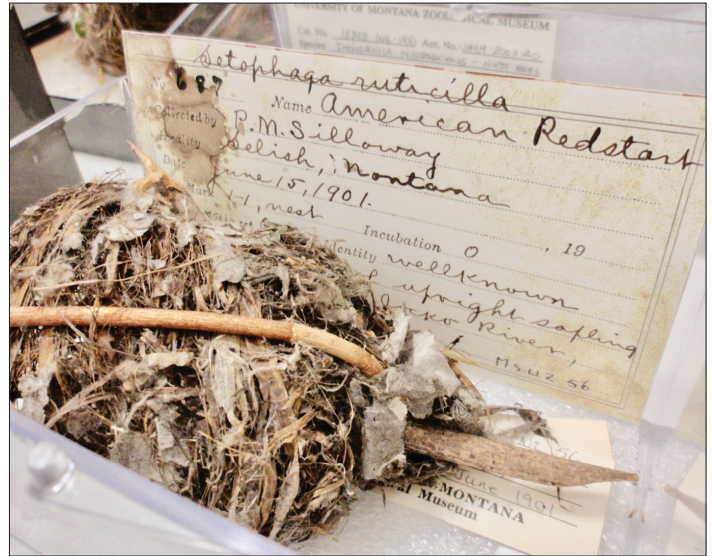 UNIVERSITY OF MONTANA ZOOLOGICAL MUSEUM
Cat. No. Acc. No.
Species
Setophaga ruticilla
No 687 Name American Redstart
Collected by P.M. Silloway
Locality Selish, Montana
Date June 15, 1901.
Mark 1-1, nest Incubation 0 , 19
Identity wellknown
upright sapling
River,
MSUZ 56
June 1901
MONTANA
Museum